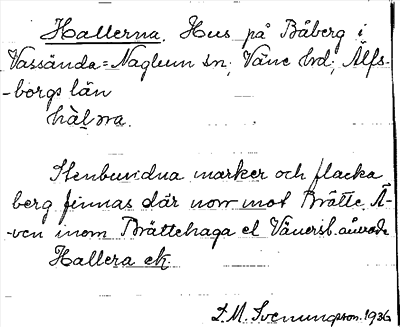 Hallerna. Hus på Båberg i
Vassända=Naglum sn; Väne hd; Älfs-
-borgs län
hàḷṇa.
Stenbundna marker och flacka
berg finnas där norr mot Brätte. Ä-
-ven inom Brättehaga el Vänersb.
Hallera ek
L.M. Svenungsson. 1936